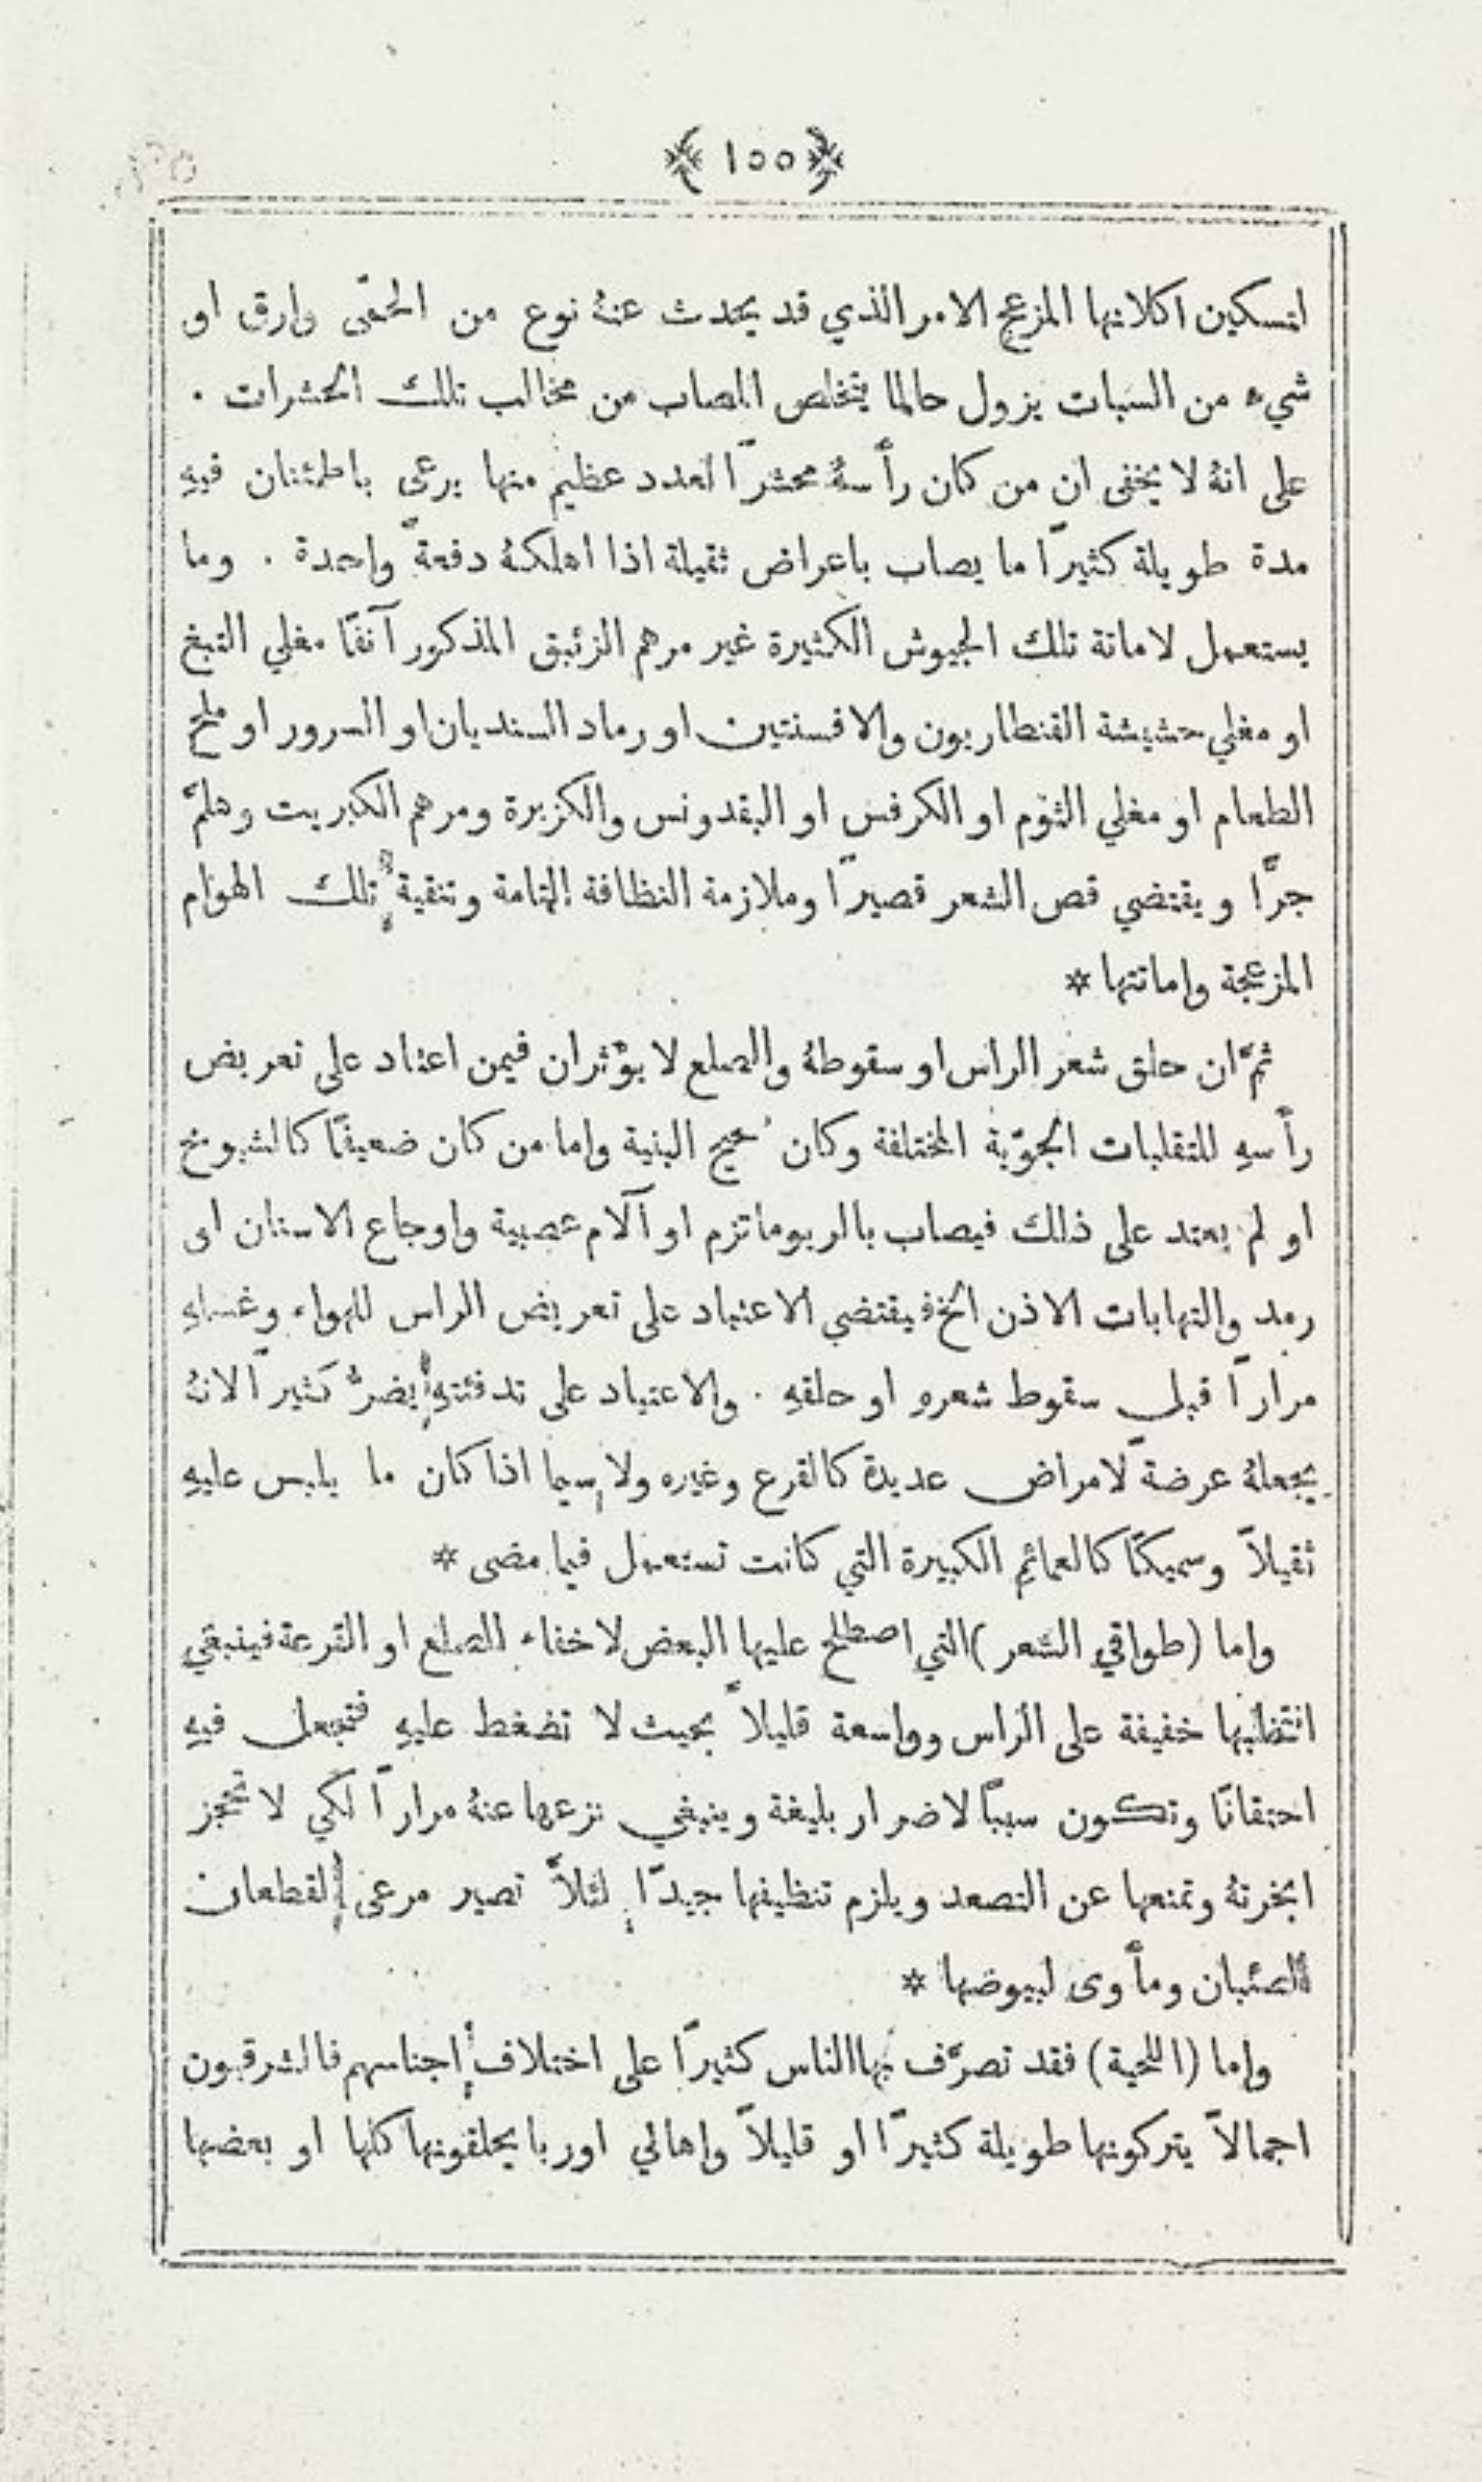 ﴿ ١٥٥ ﴾
لتسكين اكلانها المزعج الامر الذي قد يحدث عنهُ نوع من الحمّى وارق او
شيء من السبات يزول حالما يتخلص المصاب من مخالب تلك الحشرات .
على انهُ لا يخفى ان من كان رأسهُ محشرًا لعدد عظيم منها يرعى باطمئنان فيهِ
مدة طويلة كثيرًا ما يصاب باعراض ثقيلة اذا اهلكهُ دفعةً واحدة . وما
يستعمل لاماتة تلك الجيوش الكثيرة غير مرهم الزئبق المذكور آنفًا مغلي التبغ
او مغلي حشيشة القنطاريون والافسنتين او رماد السنديان او السرور او ملح
الطعام او مغلي الثوم او الكرفس او البقدونس والكزبرة ومرهم الكبريت وهلمَّ
جرًّا ويقتضي قص الشعر قصيرًا وملازمة النظافة التامة وتنقية تلك الهوام
المزعجة واماتتها *
ثمَّ ان حلق شعر الراس او سقوطهُ والصلع لا يؤثران فيمن اعتاد على تعريض
رأسهِ للتقلبات الجوّية المختلفة وكان صحيح البنية واما من كان ضعيفًا كالشيوخ
او لم يعتد على ذلك فيصاب بالريوماتزم او آلام عصبية واوجاع الاسنان او
رمد والتهابات الاذن الخ فيقتضي الاعتياد على تعريض الراس للهواء وغسلهِ
مرارًا قبل سقوط شعرهِ او حلقهِ . والاعتياد على تدفئتهِ يضرُّ كثيرًا لانهُ
يجعلهُ عرضةً لامراض عديدة كالقرع وغيره ولا سيما اذا كان ما يلبس عليهِ
ثقيلاً وسميكًا كالعمائم الكبيرة التي كانت تستعمل فيما مضى *
واما (طواقي الشعر) التي اصطلح عليها البعض لاخفاء الصلع او القرعة فينبغي
انتخابها خفيفة على الراس وواسعة قليلاً بحيث لا تضغط عليهِ فتجعل فيهِ
احتقانًا وتكون سببًا لاضرار بليغة وينبغي نزعها عنهُ مرارًا لكي لا تحجز
ابخرتهُ وتمنعها عن التصعد ويلزم تنظيفها جيدًا لئلاَّ تصير مرعى لقطعان
الصئبان ومأوى لبيوضها *
واما (اللحية) فقد تصرَّف بها الناس كثيرًا على اختلاف اجناسهم فالشرقيون
اجمالاً يتركونها طويلة كثيرًا او قليلاً واهالي اوربا يحلقونها كلها او بعضها